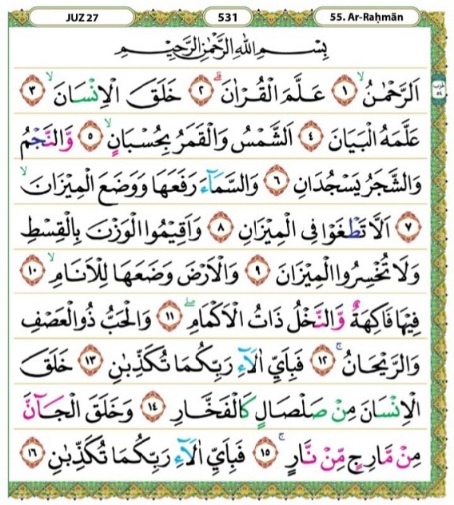 JUZ 27 531 55. Ar-Raḥmān
بِسْمِ اللهِ الرَّحْمٰنِ الرَّحِيْمِ
اَلرَّحْمٰنُ ۙ ١ عَلَّمَ الْقُرْاٰنَ ۗ ٢ خَلَقَ الْاِنْسَانَ ۙ ٣
عَلَّمَهُ الْبَيَانَ ٤ اَلشَّمْسُ وَالْقَمَرُ بِحُسْبَانٍ ۙ ٥ وَّالنَّجْمُ
وَالشَّجَرُ يَسْجُدَانِ ٦ وَالسَّمَآءَ رَفَعَهَا وَوَضَعَ الْمِيْزَانَ ۙ
٧ اَلَّا تَطْغَوْا فِى الْمِيْزَانِ ٨ وَاَقِيْمُوا الْوَزْنَ بِالْقِسْطِ
وَلَا تُخْسِرُوا الْمِيْزَانَ ٩ وَالْاَرْضَ وَضَعَهَا لِلْاَنَامِ ۙ ١٠
فِيْهَا فَاكِهَةٌ وَّالنَّخْلُ ذَاتُ الْاَكْمَامِ ۖ ١١ وَالْحَبُّ ذُو الْعَصْفِ
وَالرَّيْحَانُ ۚ ١٢ فَبِاَيِّ اٰلَآءِ رَبِّكُمَا تُكَذِّبٰنِ ١٣ خَلَقَ
الْاِنْسَانَ مِنْ صَلْصَالٍ كَالْفَخَّارِ ١٤ وَخَلَقَ الْجَآنَّ
مِنْ مَّارِجٍ مِّنْ نَّارٍ ۚ ١٥ فَبِاَيِّ اٰلَآءِ رَبِّكُمَا تُكَذِّبٰنِ ١٦